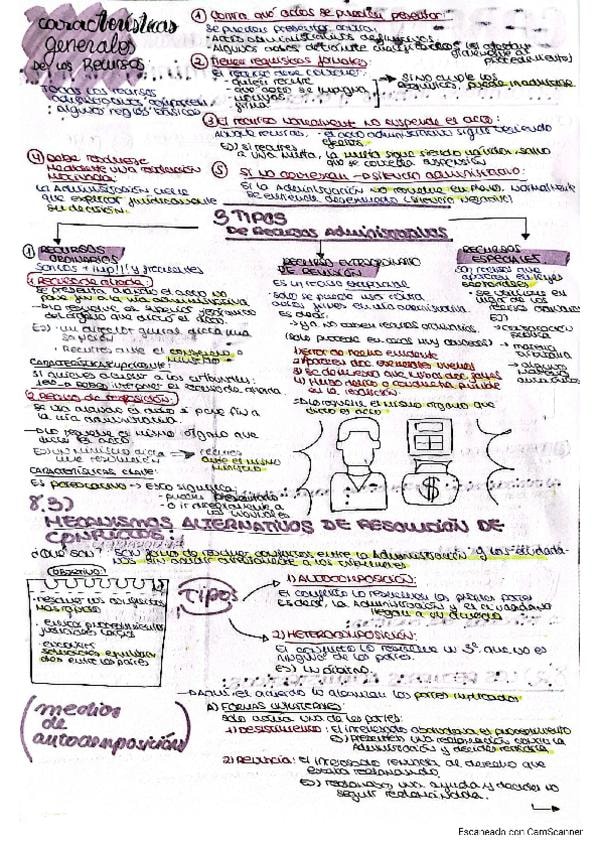 características
generales
DE LOS RECURSOS
TODOS LOS recursos
administrativos comparten
algunas reglas básicas
① Contra qué actos se pueden presentar:
Se pueden presentar contra:
· Actos administrativos definitivos
· Algunos actos
procedimiento)
② Tienen requisitos formales:
El recurso debe contener:
- quien recurre
- que acto se impugna
- motivos
- firma
→ SI NO cumple los
requisitos, puede inadmitirse
③ El recurso normalmente no suspende el acto:
Aunque recurras, el acto administrativo sigue teniendo
efectos.
EJ) si recurres
a una multa, la multa sigue siendo válida, salvo
que se conceda suspensión
④ Debe resolverse
mediante una resolución
motivada:
La Administración tiene
que explicar jurídicamente
su decisión.
⑤ Si no contestan → silencio administrativo:
Si la Administración no resuelve en plazo, normalmente
se entiende desestimado (silencio negativo)
3 TIPOS
DE Recursos Administrativos
① RECURSOS
ORDINARIOS
Son los + imp!! y frecuentes
1. Recurso de alzada:
Se presenta cuando el acto no
pone fin a la vía administrativa.
→ Lo resuelve el superior jerárquico
del órgano que dictó el acto
EJ) un director general dicta una
sanción
· Recurres ante el consejero o
ministro
Característica importante:
Si quieres acudir a los tribunales:
2. Recurso de reposición:
Se usa cuando el acto sí pone fin a
la vía administrativa.
→ Lo resuelve el mismo órgano que
dictó el acto
EJ) un ministro dicta
una resolución → recurres
ante el mismo
ministro
Características clave:
Es potestativo → esto significa:
- puedes presentarlo
- o ir directamente a
los tribunales
RECURSO EXTRAORDINARIO
DE REVISIÓN
Es un recurso excepcional
· Solo se puede usar contra
actos firmes en vía administrativa
Es decir:
→ ya no caben recursos ordinarios
(solo procede en casos muy concretos)
1) Error de hecho evidente
2) Aparecen docs esenciales nuevos
3) Se demuestra que hubo docs falsos
4) Hubo delito o conducta punible
en la resolución
→ Lo resuelve el mismo órgano que
dictó el acto
RECURSOS
ESPECIALES
Son recursos que
aparecen en leyes
sectoriales
- Se utilizan en
lugar de los
recursos ordinarios
EJ)
→ contratación
pública
→ materia
tributaria
→ algunas
materias
8.3)
MECANISMOS ALTERNATIVOS DE RESOLUCIÓN DE
CONFLICTOS:
¿Qué son? Son forma de resolver conflictos entre la Administración y los ciudada-
nos sin acudir directamente a los tribunales
OBJETIVO:
- resolver los conflictos
más rápido
- evitar procedimientos
judiciales largos
- encontrar
soluciones equilibra-
das entre las partes
Tipos
1) AUTOCOMPOSICIÓN:
El conflicto lo resuelven las propias partes
Es decir, la Administración y el ciudadano
llegan a un acuerdo
2) HETEROCOMPOSICIÓN:
El conflicto lo resuelve un 3º que no es
ninguna de las partes.
EJ) un árbitro.
(medios
de
autocomposición)
→ Aquí el acuerdo lo alcanzan las partes implicadas
A) FORMAS UNILATERALES:
Solo actúa una de las partes:
1) DESISTIMIENTO: El interesado abandona el procedimiento
EJ) Presentas una reclamación contra la
Administración y decides retirarla
2) RENUNCIA: El interesado renuncia al derecho que
estaba reclamando.
EJ) reclamas una ayuda y decides no
seguir reclamándola.
Escaneado con CamScanner